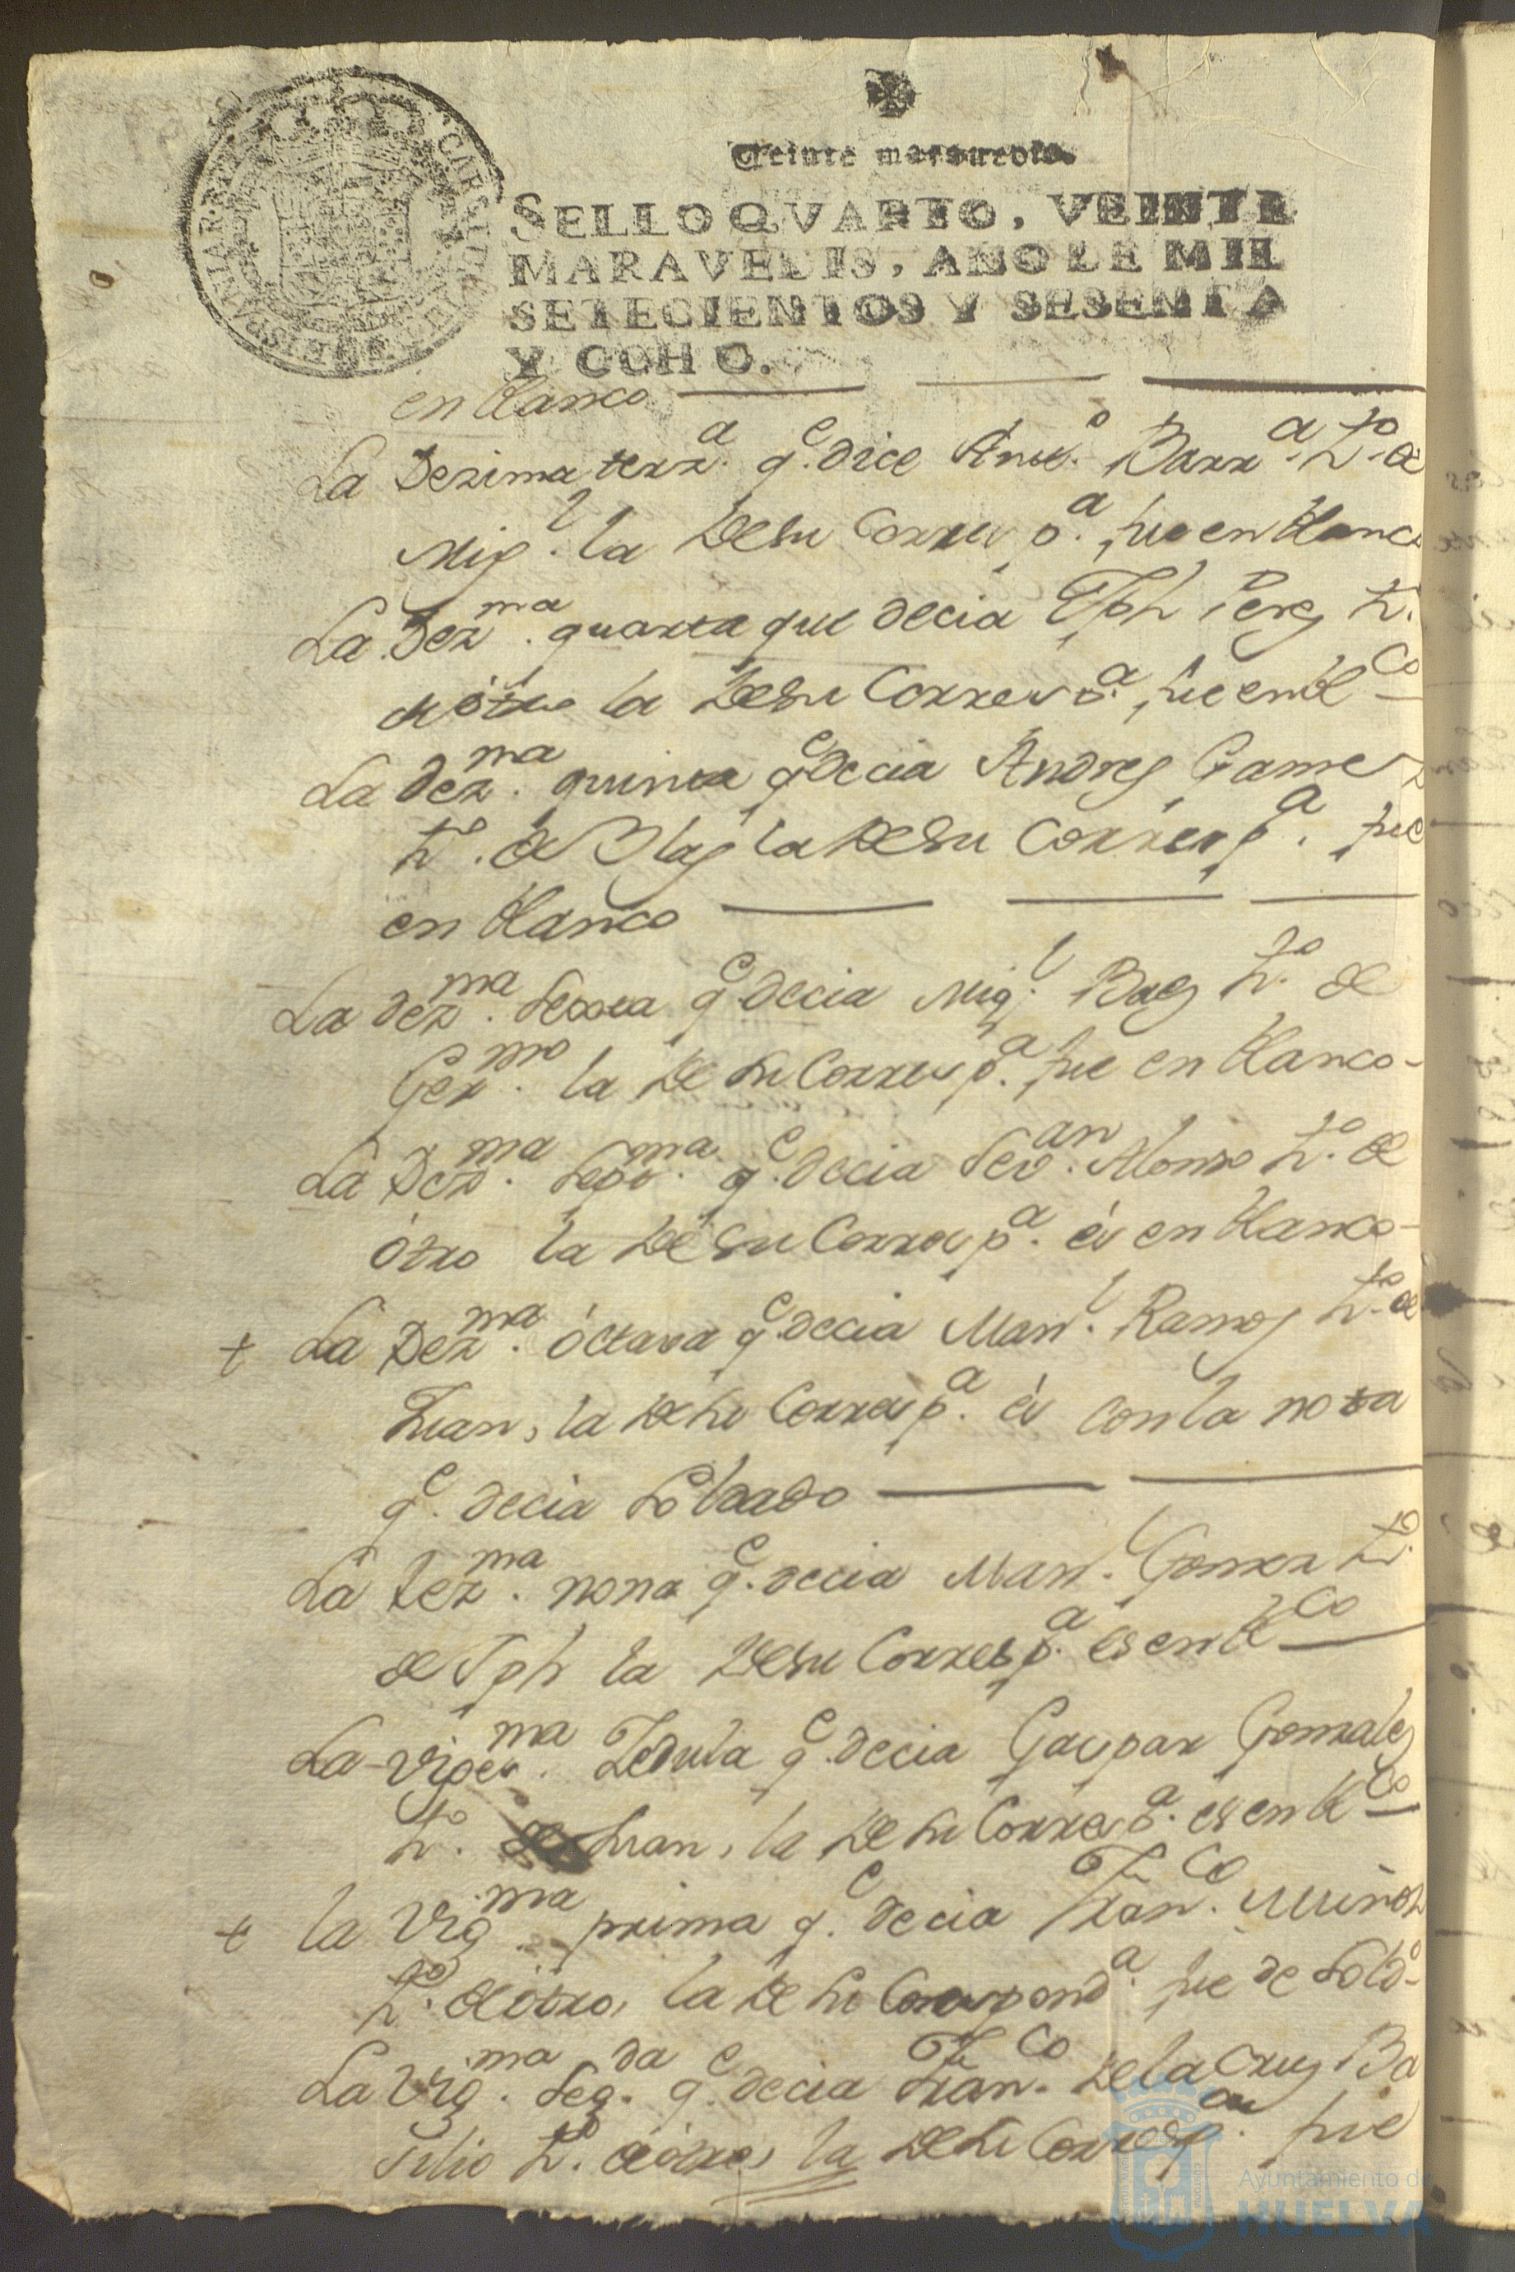 Veinte maravedis.
SELLO QVARTO, VEINTE
MARAVEDIS, AÑO DE MIL
SETECIENTOS Y SESENTA
Y OCHO.
en blanco
La Dezima terz.ª q.e dice Ant.º Barr.ª h.to de
Mig.l la de su Corresp.ª fue en blanco
La Dez.ma quarta que decia Jph Perez h.
de otro la de su Corresp.ª fue en bl.co
La dez.ma quinta q.e decia Andres Gamez
h.º de Blas la de su Corresp.ª fue
en blanco
La dez.ma Sexta q.e decia Mig.l Baez h.to de
Ger.mo la de su Corresp.ª fue en blanco
La Dez.ma Sept.ma q.e decia Sev.an Alonso h.º de
otro la de su Corresp.ª es en blanco
+ La Dez.ma octava q.e decia Man.l Ramos h.to de
Juan, la de su Corresp.ª es con la nota
q.e decia Soldado
La Dez.ma nona q.e decia Man.l Gomez h.to
de Jph la de su Corresp.ª es en bl.co
La Viges.ma Zedula q.e decia Gaspar Gonzalez
h.to de Juan, la de su Corresp.ª es en bl.co
+ la Vig.ma prima q.e decia Fran.co Muñoz
h.to de otro, la de su Correspond.ª fue de Sold.º
La Vig.ma Seg.da q.e decia Fran.co de la Cruz Ba
h.to de otro, la de su Corresp.ª fue
Ayuntamiento de
HUELVA